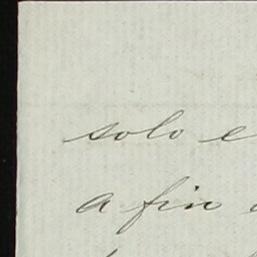 solo e
a fin